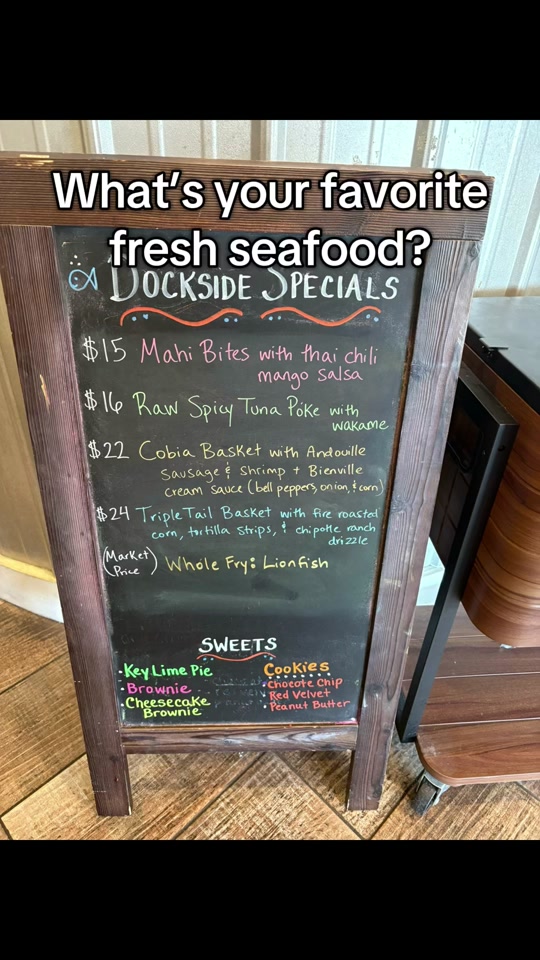 What's your favorite
fresh seafood?
DOCKSIDE SPECIALS
$15 Mahi Bites with thai chili
mango salsa
$16 Raw Spicy Tuna Poke with
wakame
$22 Cobia Basket with Andouille
Sausage & Shrimp + Bienville
cream sauce (bell peppers, onion, & corn)
$24 Triple Tail Basket with fire roasted
corn, tortilla strips, & chipotle ranch
drizzle
(Market Price) Whole Fry: Lionfish
SWEETS
• Key Lime Pie
• Brownie
• Cheesecake
Brownie
Cookies
• Chocote Chip
• Red Velvet
• Peanut Butter